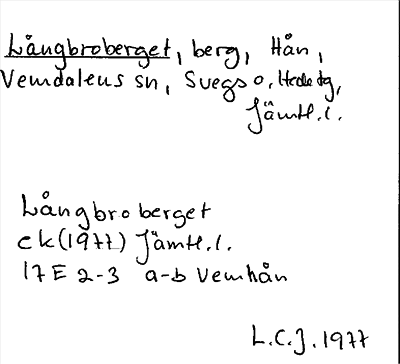 Långbroberget, berg, Hån,
Vemdalens sn, Svegs o. Hede tg,
Jämtl. l.
Långbroberget
ek (1977) Jämtl. l.
17E 2-3 a-b Vemhån
L.C.J. 1977